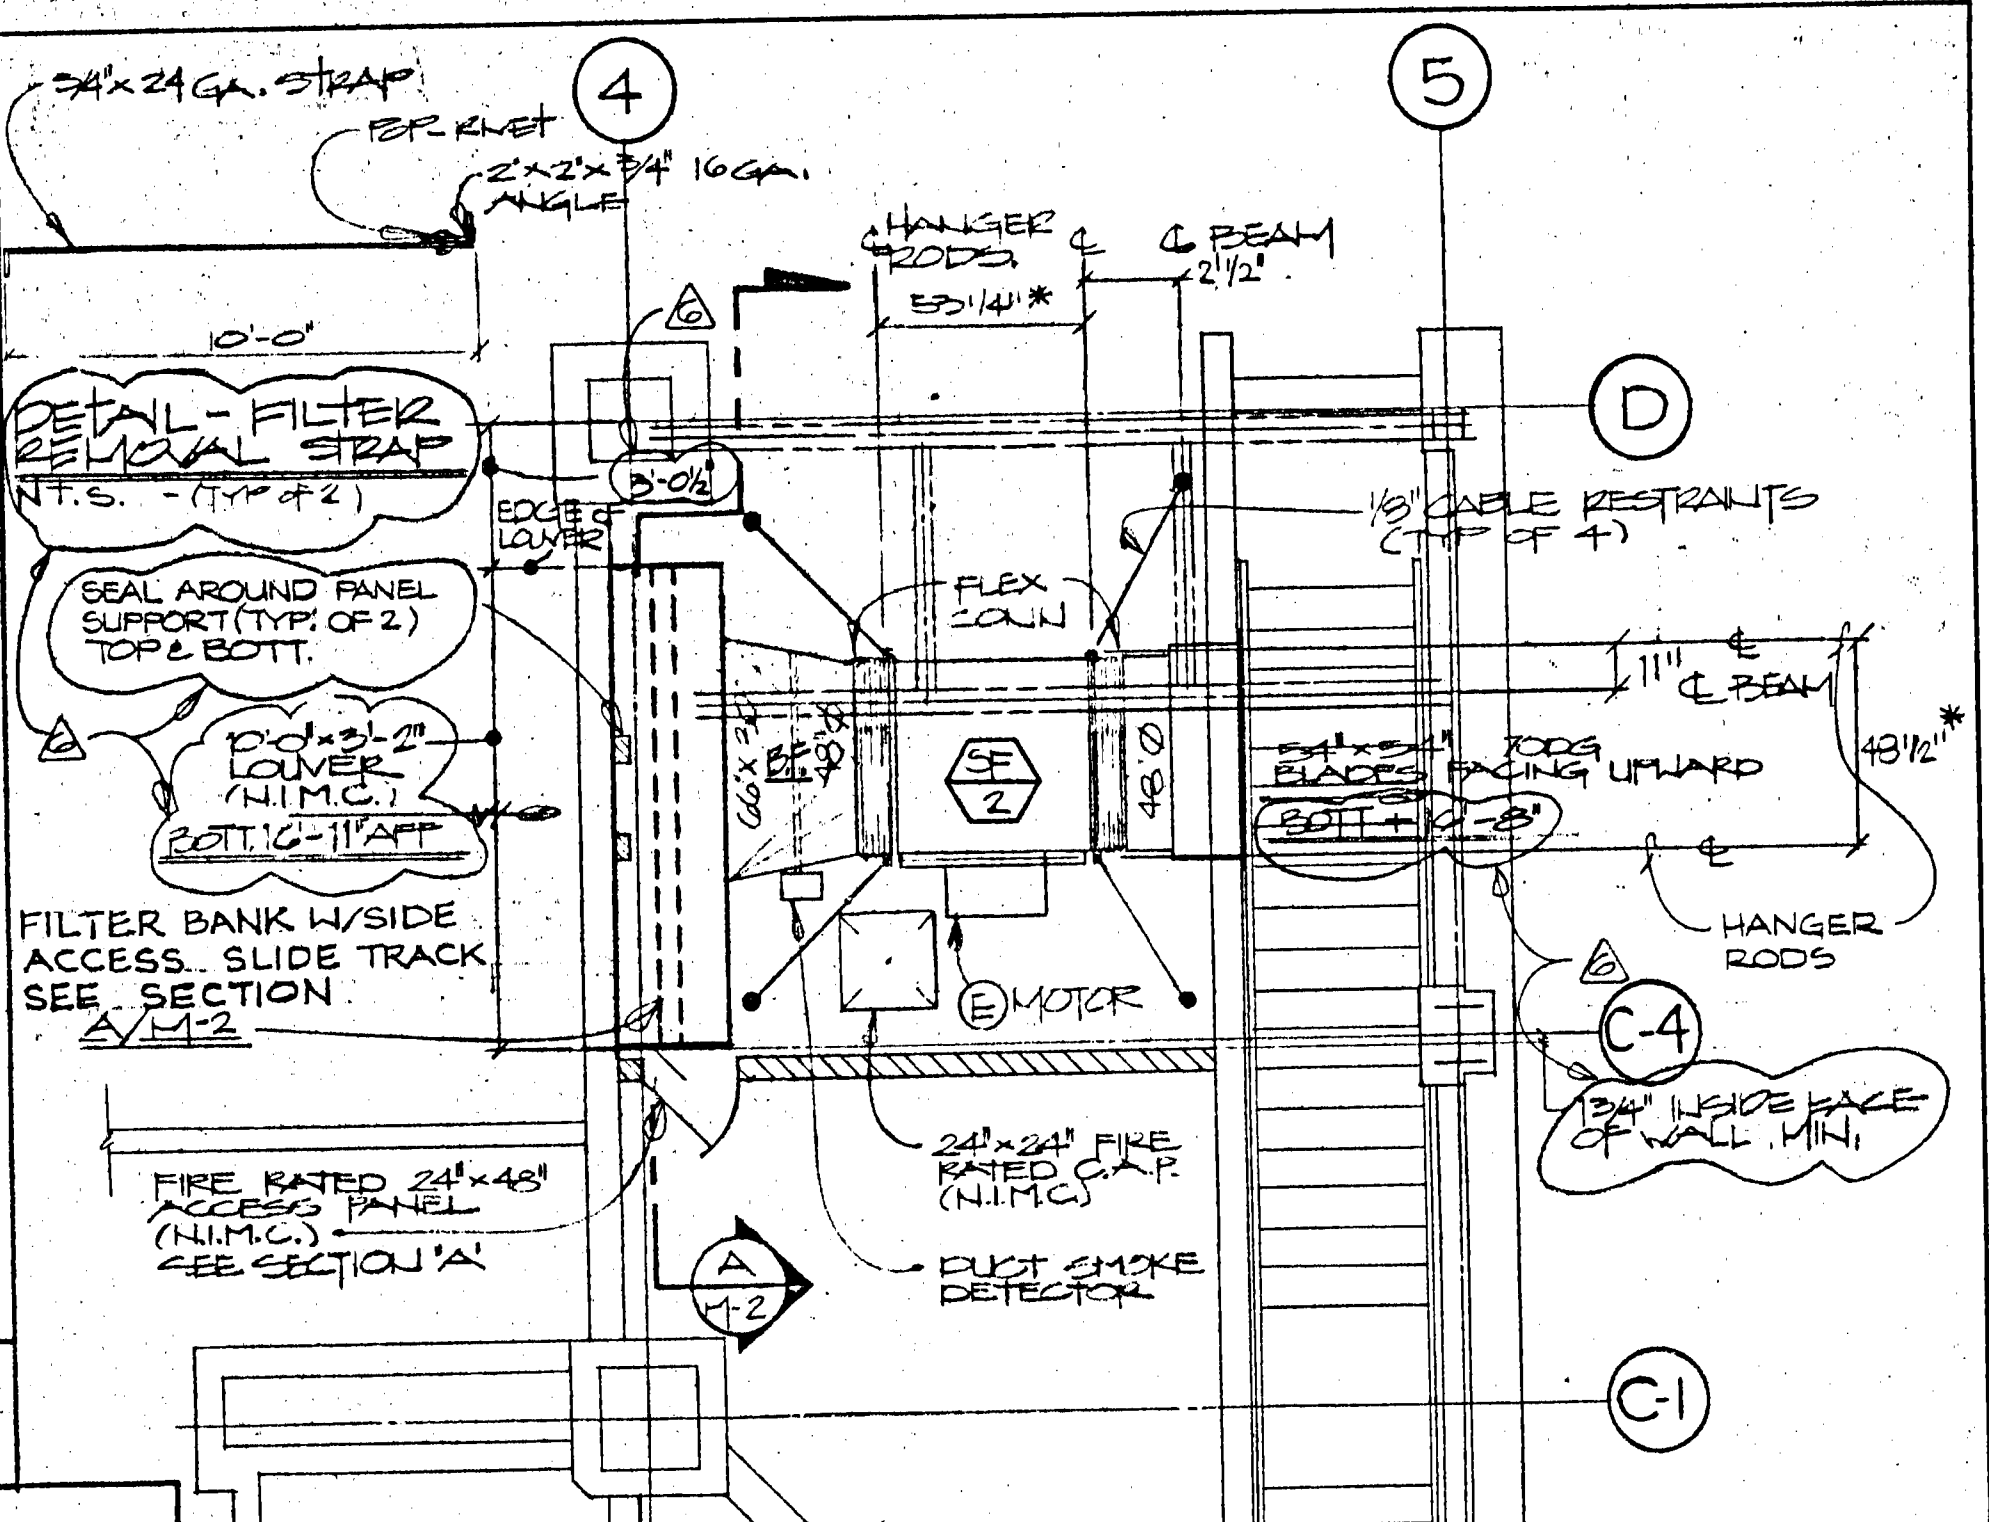 3/4" x 24 GA. STRAP
POP-RIVET
2" x 2" x 3/4" 16 GA.
ANGLE
4
5
℄ HANGER
RODS.
℄
℄ BEAM
2 1/2"
53 1/4" *
6
10'-0"
DETAIL - FILTER
REMOVAL STRAP
N.T.S. - (TYP OF 2)
D
3'-0 1/2
EDGE OF
LOUVER
1/8" CABLE RESTRAINTS
(TYP OF 4)
SEAL AROUND PANEL
SUPPORT (TYP. OF 2)
TOP & BOTT.
FLEX
CONN
℄
11"
℄ BEAM
48 1/2" *
6
10'-0" x 3'-2"
LOUVER
(N.I.M.C.)
BOTT. 16'-11" AFF
48"Ø
SF
2
48"Ø
54" x 54" 70DG
BLADES FACING UPWARD
℄
HANGER
RODS
6
FILTER BANK W/SIDE
ACCESS SLIDE TRACK
SEE SECTION
A/M-2
E MOTOR
C-4
1 3/4" INSIDE FACE
OF WALL. MIN.
FIRE RATED 24" x 48"
ACCESS PANEL
(N.I.M.C.)
SEE SECTION 'A'
24" x 24" FIRE
RATED C.A.P.
(N.I.M.C.)
A
M-2
DUCT SMOKE
DETECTOR
C-1